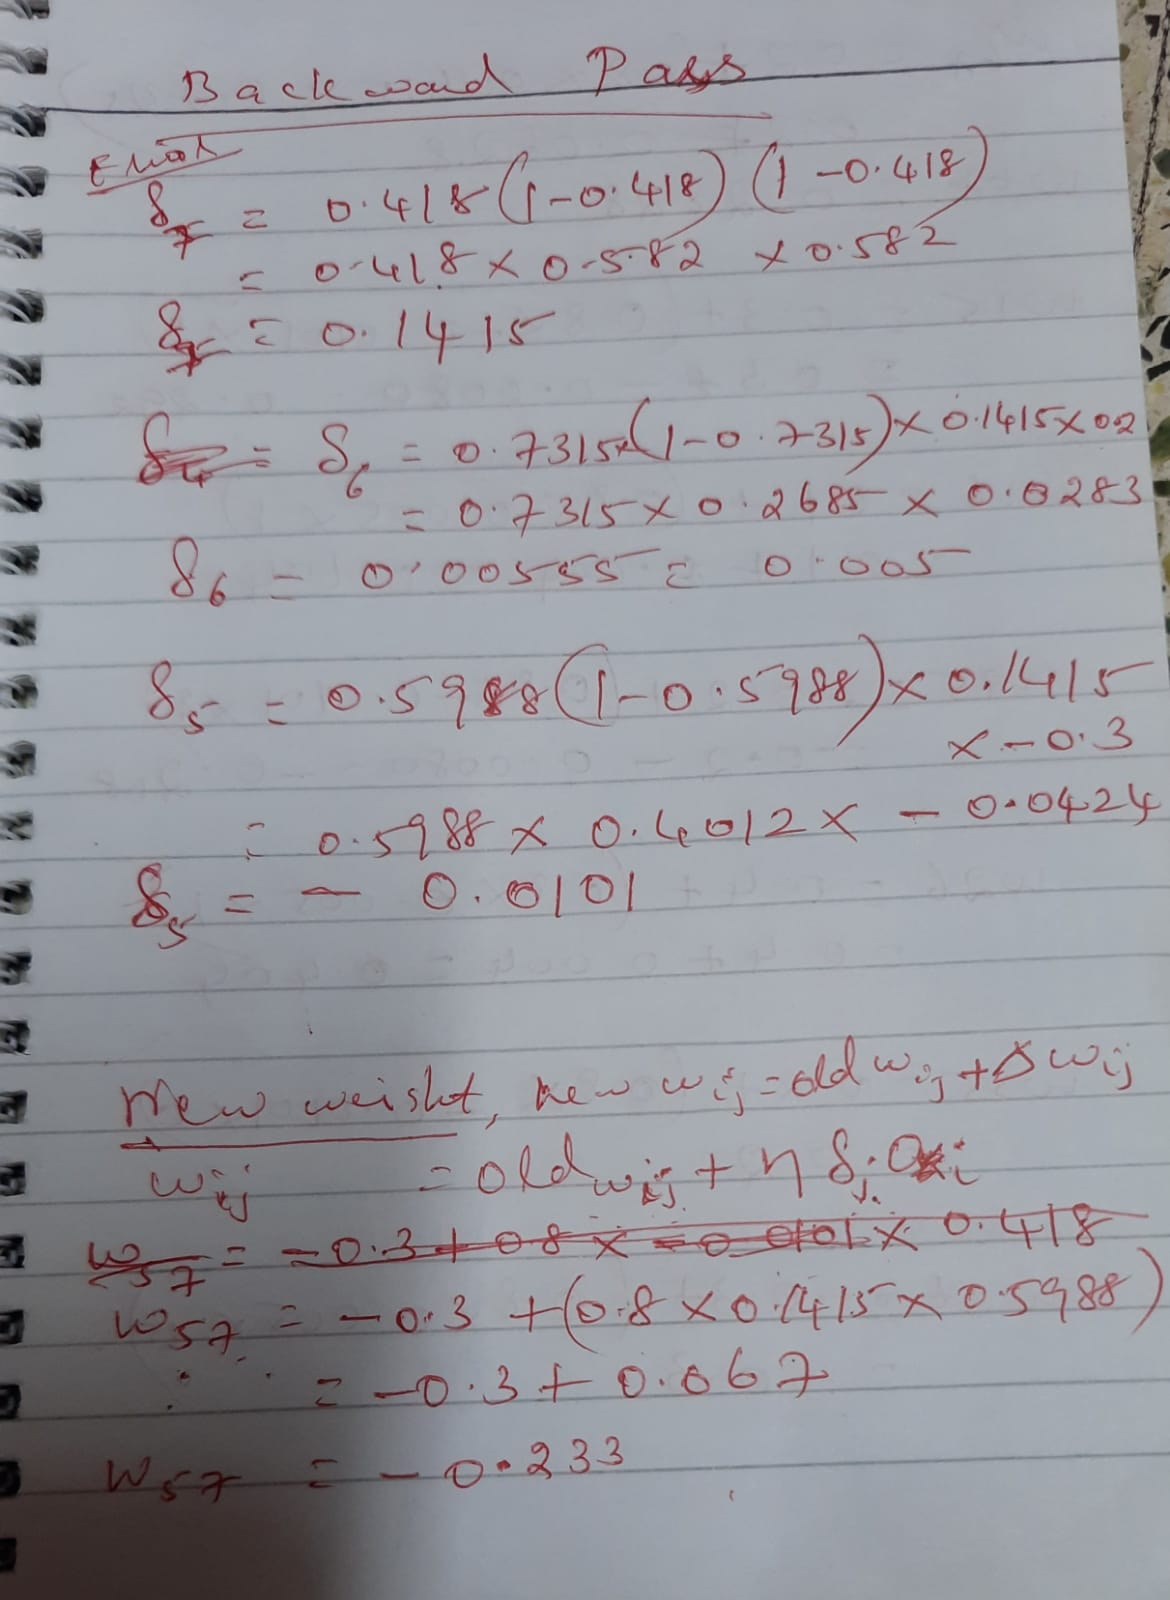 Backward Pass
Error
δ7 = 0.418 (1-0.418) (1-0.418)
= 0.418 × 0.582 × 0.582
δ7 = 0.1415
δ4 = δ6 = 0.7315×(1-0.7315)×0.1415×0.2
= 0.7315 × 0.2685 × 0.0283
δ6 = 0.00555 = 0.005
δ5 = 0.5988 (1-0.5988)×0.1415
× -0.3
= 0.5988 × 0.4012 × -0.0424
δ5 = - 0.0101
New weight, new wij = old wij + Δwij
wij = old wij + η δj.Oi
w57 = -0.3 + 0.8 × -0.0101 × 0.418
w57 = -0.3 + (0.8 × 0.1415 × 0.5988)
= -0.3 + 0.067
w57 = - 0.233